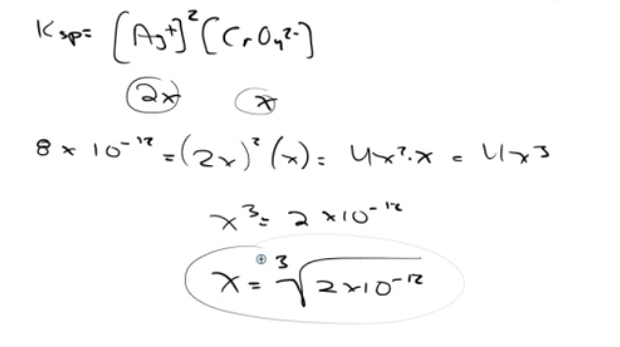 Ksp = [Ag+]²[CrO₄²⁻]
2x x
8 × 10⁻¹² = (2x)²(x) = 4x²·x = 4x³
x³ = 2 × 10⁻¹²
x = ³√2×10⁻¹²